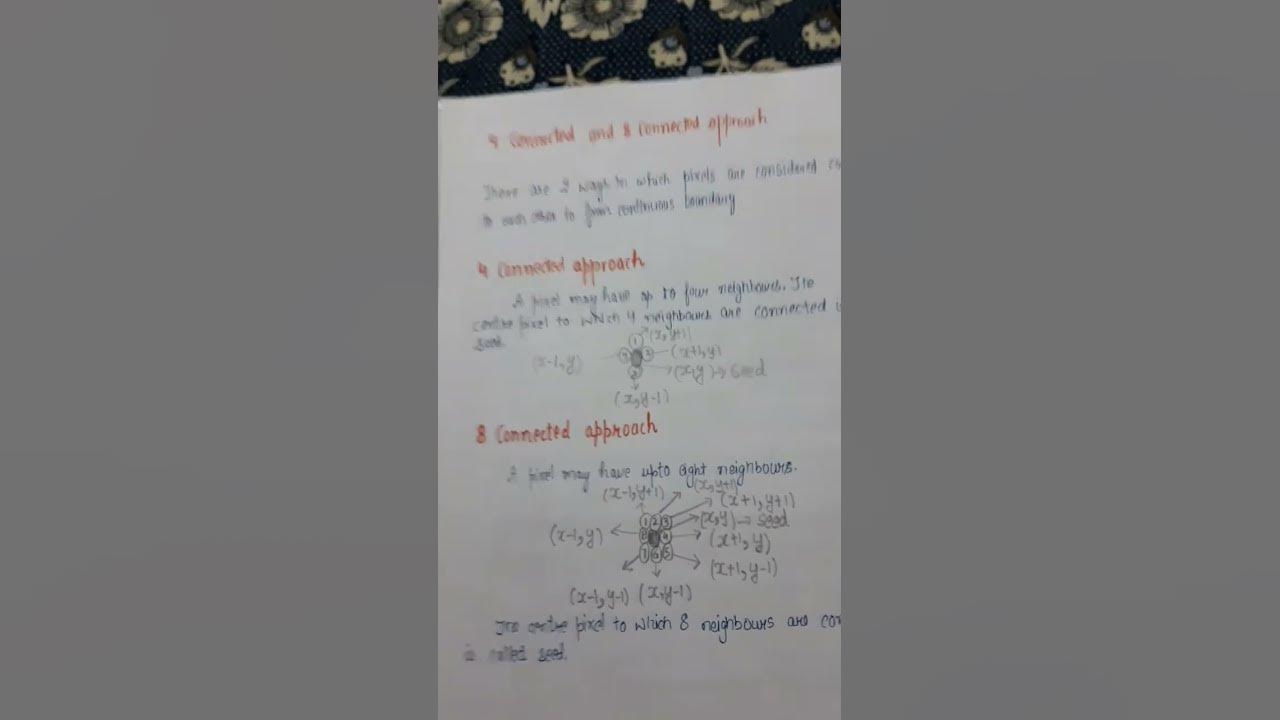 4 Connected and 8 Connected approach
There are 2 ways in which pixels are considered
to each other to form continuous boundary
4 Connected approach
A pixel may have up to four neighbours. The
centre pixel to which 4 neighbours are connected
seed.
1 (x, y+1)
(x-1, y) (x+1, y)
(x, y) → Seed
(x, y-1)
8 Connected approach
A pixel may have upto eight neighbours.
(x-1, y+1) (x, y+1)
(x+1, y+1)
1 2 3 (x, y) → seed
(x-1, y) 8 4 (x+1, y)
7 6 5 (x+1, y-1)
(x-1, y-1) (x, y-1)
The centre pixel to which 8 neighbours are
is called seed.